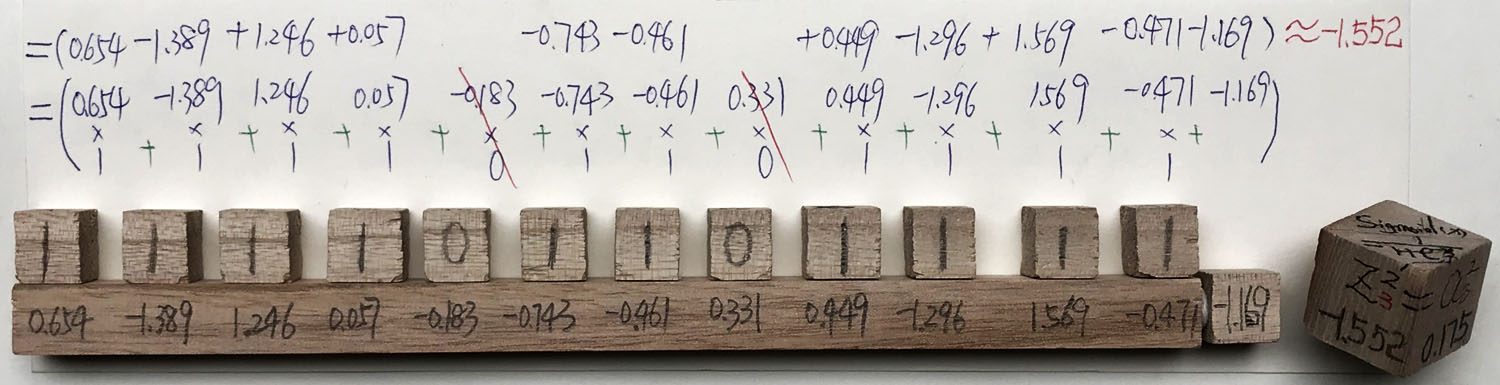 =(0.654 -1.389 +1.246 +0.057 -0.743 -0.461 +0.449 -1.296 + 1.569 -0.471 -1.169) ≈-1.552
=(0.654 -1.389 1.246 0.057 -0.183 -0.743 -0.461 0.331 0.449 -1.296 1.569 -0.471 -1.169)
× + × + × + × + × + × + × + × + × + × + × + × +
1 1 1 1 0 1 1 0 1 1 1 1
1 1 1 1 0 1 1 0 1 1 1 1
0.654 -1.389 1.246 0.057 -0.183 -0.743 -0.461 0.331 0.449 -1.296 1.569 -0.471 -1.169
Z 2 3 = a 2 3
-1.552 0.175